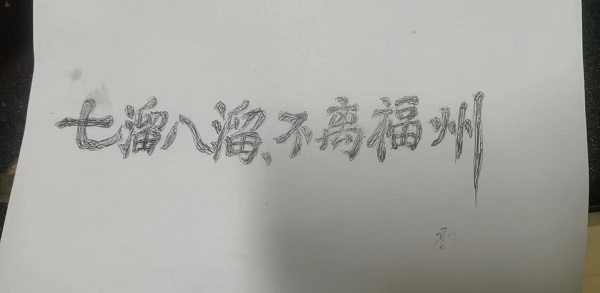 七溜八溜、不离福州